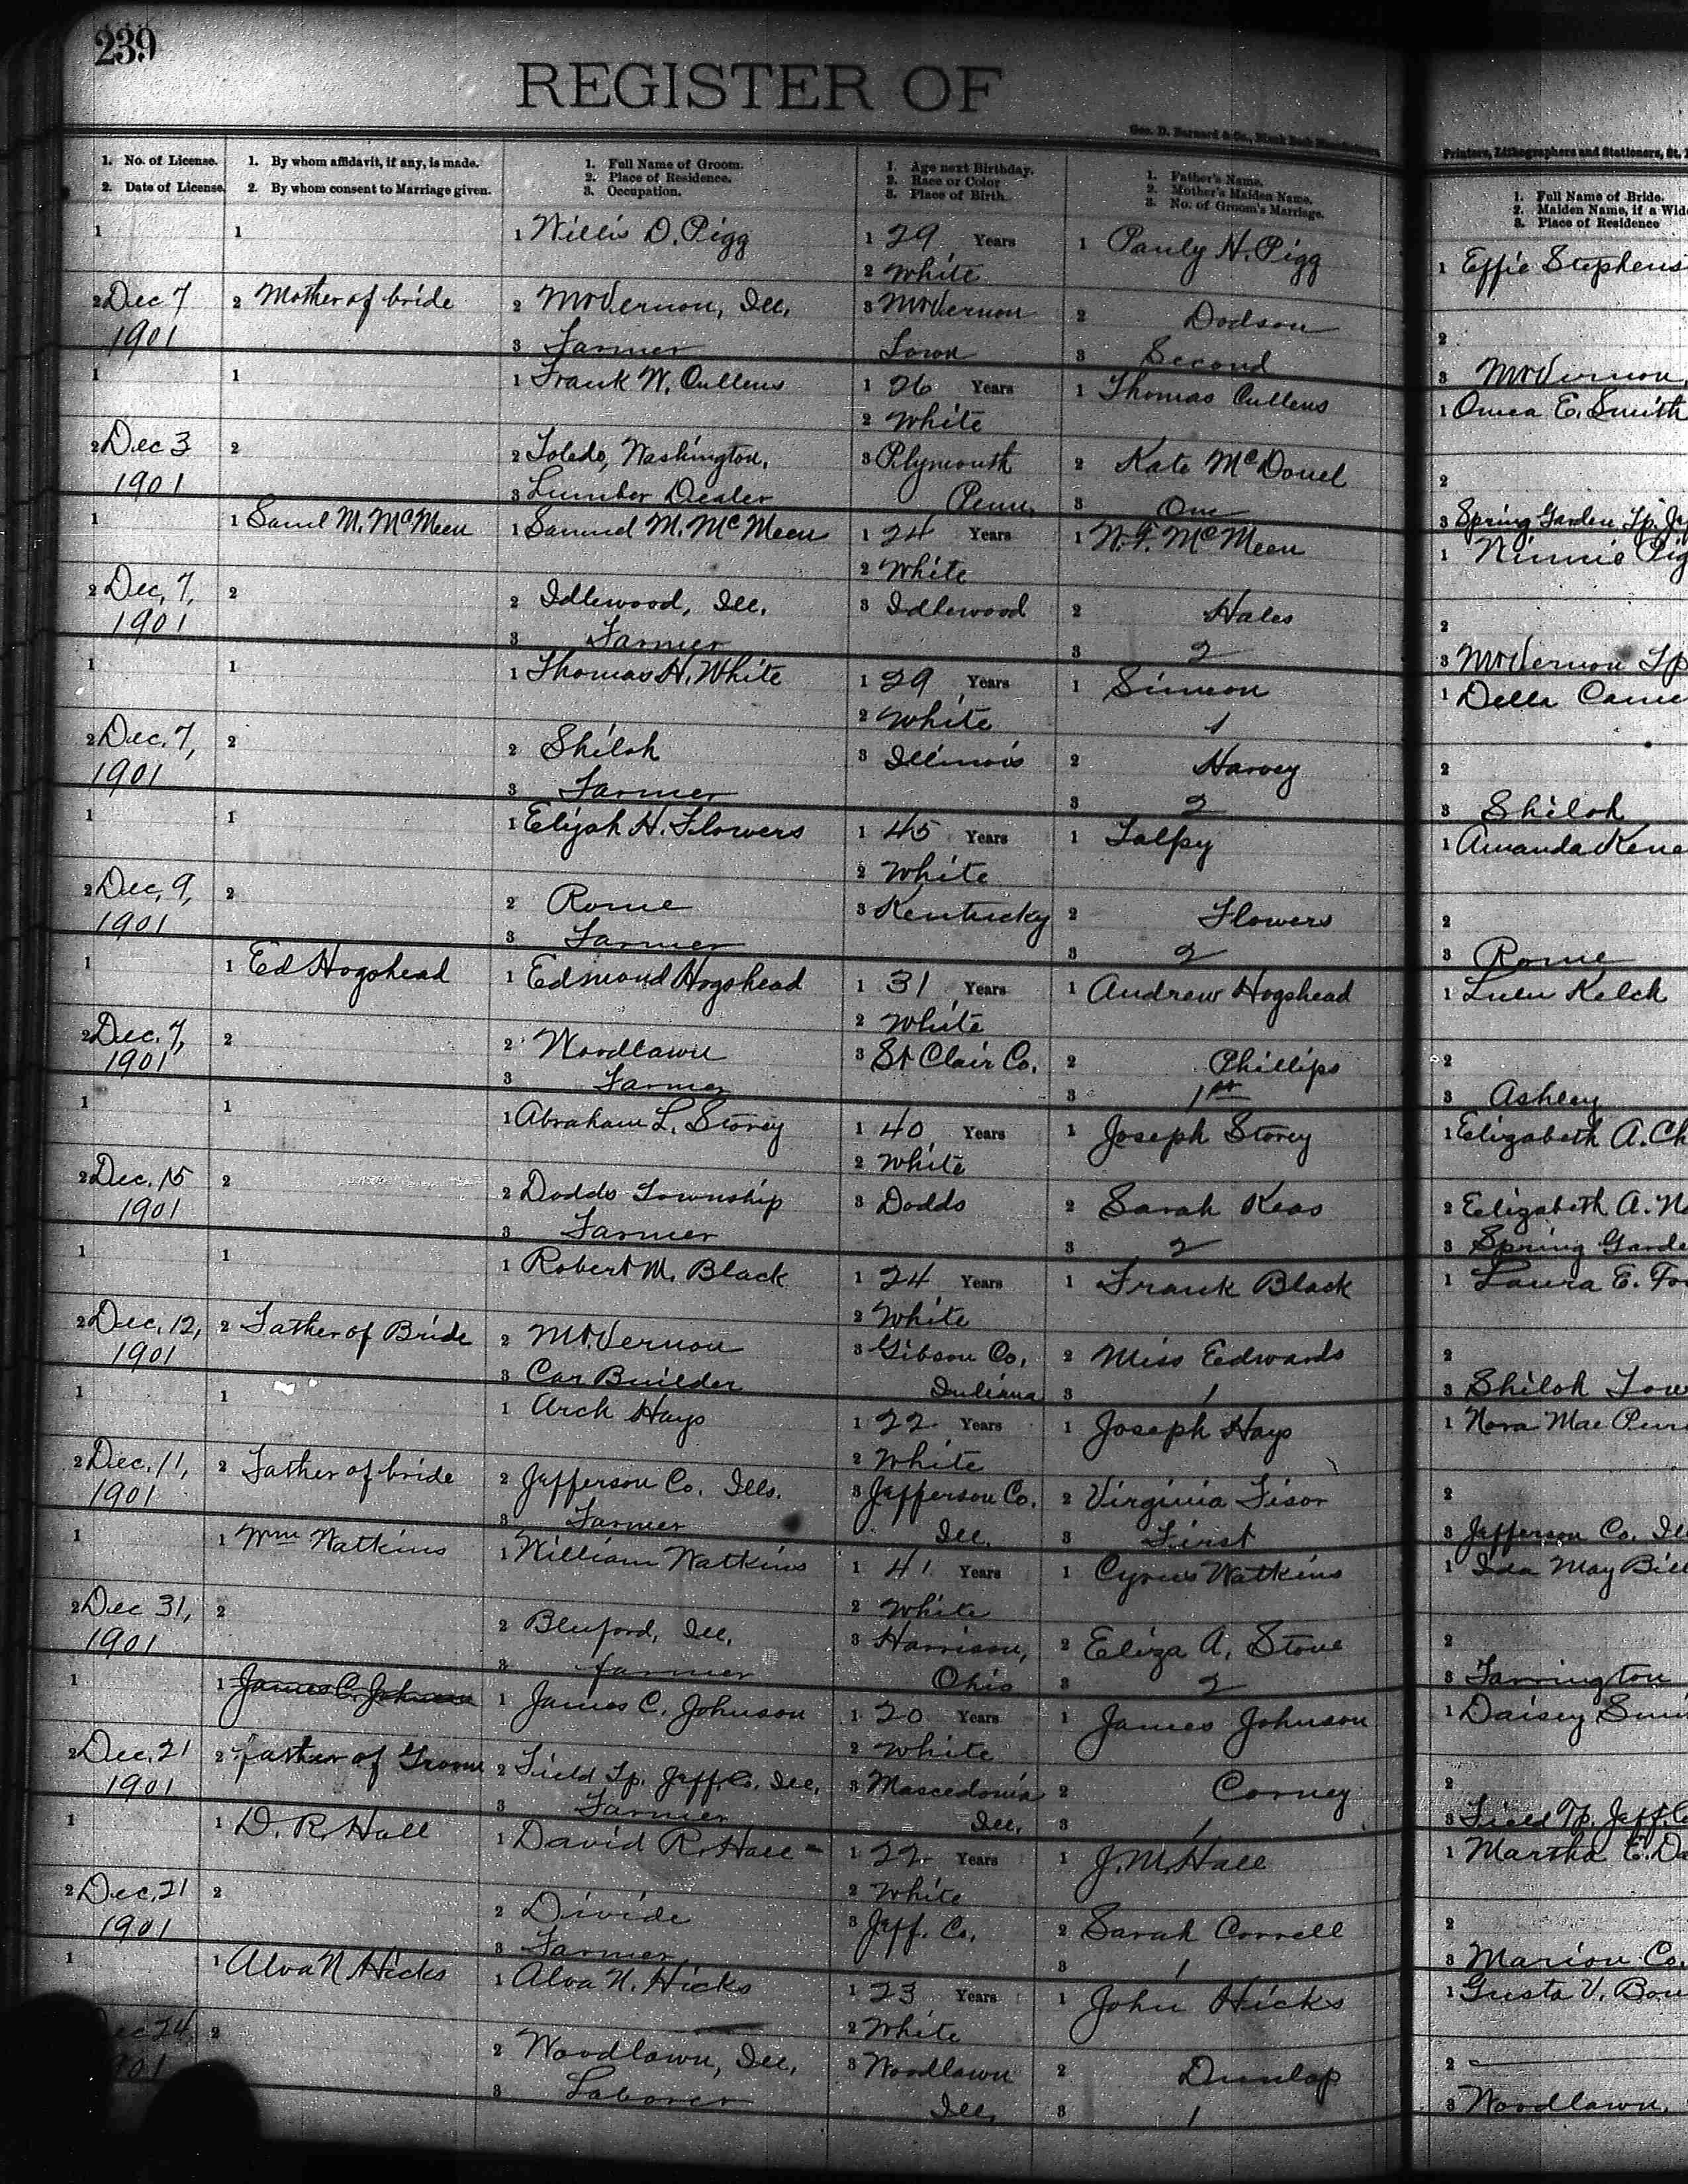 239
REGISTER OF
Geo. D. Barnard & Co., Blank Book Manufacturers
Printers, Lithographers and Stationers, St.
1. No. of License.
2. Date of License.
1. By whom affidavit, if any, is made.
2. By whom consent to Marriage given.
1. Full Name of Groom.
2. Place of Residence.
3. Occupation.
1. Age next Birthday.
2. Race or Color
3. Place of Birth.
1. Father's Name.
2. Mother's Maiden Name.
3. No. of Groom's Marriage.
1. Full Name of Bride.
2. Maiden Name, if a Wid
3. Place of Residence
1
2 Dec 7
1901
1
2 Mother of bride
1 Willis D. Pigg
2 Mt Vernon, Ill.
3 Farmer
1 29 Years
2 White
3 Mt Vernon
Town
1 Pauly H. Pigg
2 Dodson
3 Second
1 Effie Stephens
2
3 Mt Vernon,
1
2 Dec 3
1901
1
2
1 Frank W. Cullens
2 Toledo, Washington,
3 Lumber Dealer
1 26 Years
2 White
3 Plymouth
Penn.
1 Thomas Cullens
2 Kate McDonel
3 One
1 Omea E. Smith
2
3 Spring Garden Tp. Jef
1
2 Dec. 7,
1901
1 Saml M. McMeen
2
1 Samuel M. McMeen
2 Idlewood, Ill.
3 Farmer
1 24 Years
2 White
3 Idlewood
1 McMeen
2 Hales
3 2
1 Pig
2
3 Mt Vernon Tp
1
2 Dec. 7,
1901
1
2
1 Thomas H. White
2 Shiloh
3 Farmer
1 29 Years
2 White
3 Illinois
1 Simeon
2 Harvey
3 2
1 Della Came
2
3 Shiloh
1
2 Dec. 9,
1901
1
2
1 Elijah H. Flowers
2 Rome
3 Farmer
1 45 Years
2 White
3 Kentucky
1 Talpy
2 Flowers
3 2
1 Amanda Kene
2
3 Rome
1
2 Dec. 7,
1901
1 Ed Hogshead
2
1 Edmond Hogshead
2 Woodlawn
3 Farmer
1 31 Years
2 White
3 St Clair Co.
1 Andrew Hogshead
2 Phillips
3 1st
1 Lulu Kelch
2
3 Ashley
1
2 Dec. 15
1901
1
2
1 Abraham L. Storey
2 Dodds Township
3 Farmer
1 40 Years
2 White
3 Dodds
1 Joseph Storey
2 Sarah Keas
3 2
1 Elizabeth A. Ch
2 Elizabeth A. Na
3 Spring Garde
1
2 Dec. 12,
1901
1
2 Father of Bride
1 Robert M. Black
2 Mt. Vernon
3 Car Builder
1 24 Years
2 White
3 Gibson Co.
Indiana
1 Frank Black
2 Miss Edwards
3 1
1 Laura E. Fo
2
3 Shiloh Tow
1
2 Dec. 11,
1901
1
2 Father of bride
1 Arch Hays
2 Jefferson Co. Ills.
3 Farmer
1 22 Years
2 White
3 Jefferson Co.
Ill.
1 Joseph Hays
2 Virginia Fisor
3 First
1 Nora Mae
2
3 Jefferson Co. Ill
1
2 Dec 31,
1901
1 Wm Watkins
2
1 William Watkins
2 Bluford, Ill.
3 farmer
1 41 Years
2 White
3 Harrison,
Ohio
1 Cyrus Watkins
2 Eliza A. Stone
3 2
1 Ida May Bill
2
3 Farrington
1
2 Dec. 21
1901
1 James C. Johnson
2 father of Groom
1 James C. Johnson
2 Field Tp. Jeff. Co. Ill.
3 Farmer
1 20 Years
2 White
3 Mascedonia
Ill.
1 James Johnson
2 Corney
3 1
1 Daisey Smi
2
3 Field Tp. Jeff. C
1
2 Dec. 21
1901
1 D. R. Hall
2
1 David R. Hall
2 Divide
3 Farmer
1 22 Years
2 White
3 Jeff. Co.
1 J. M. Hall
2 Sarah Correll
3 1
1 Martha E. Da
2
3 Marion Co.
1
Dec 24
1901
1 Alva N Hicks
2
1 Alva N. Hicks
2 Woodlawn, Ill.
3 Laborer
1 23 Years
2 White
3 Woodlawn
Ill.
1 John Hicks
2 Dunlap
3 1
1 Gusta V. Bou
2
3 Woodlawn,